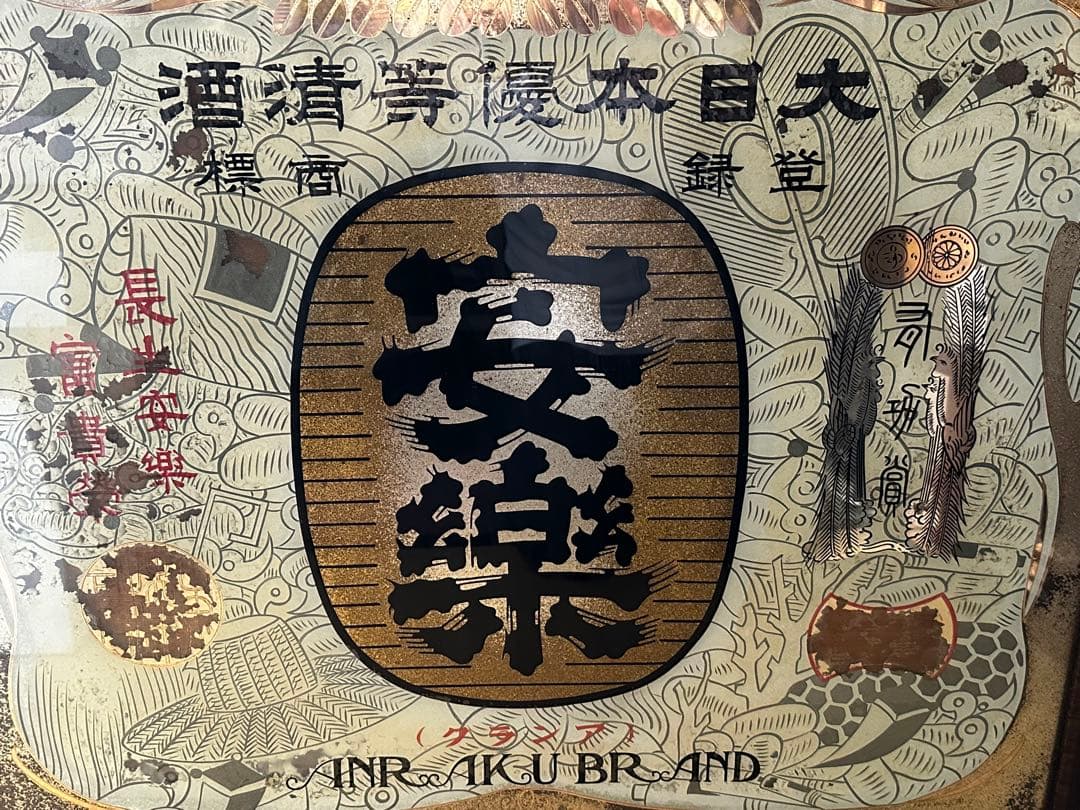 大日本優等清酒
登録 商標
有功賞
安樂
長生安樂
富貴榮
(アンラク)
ANRAKU BRAND